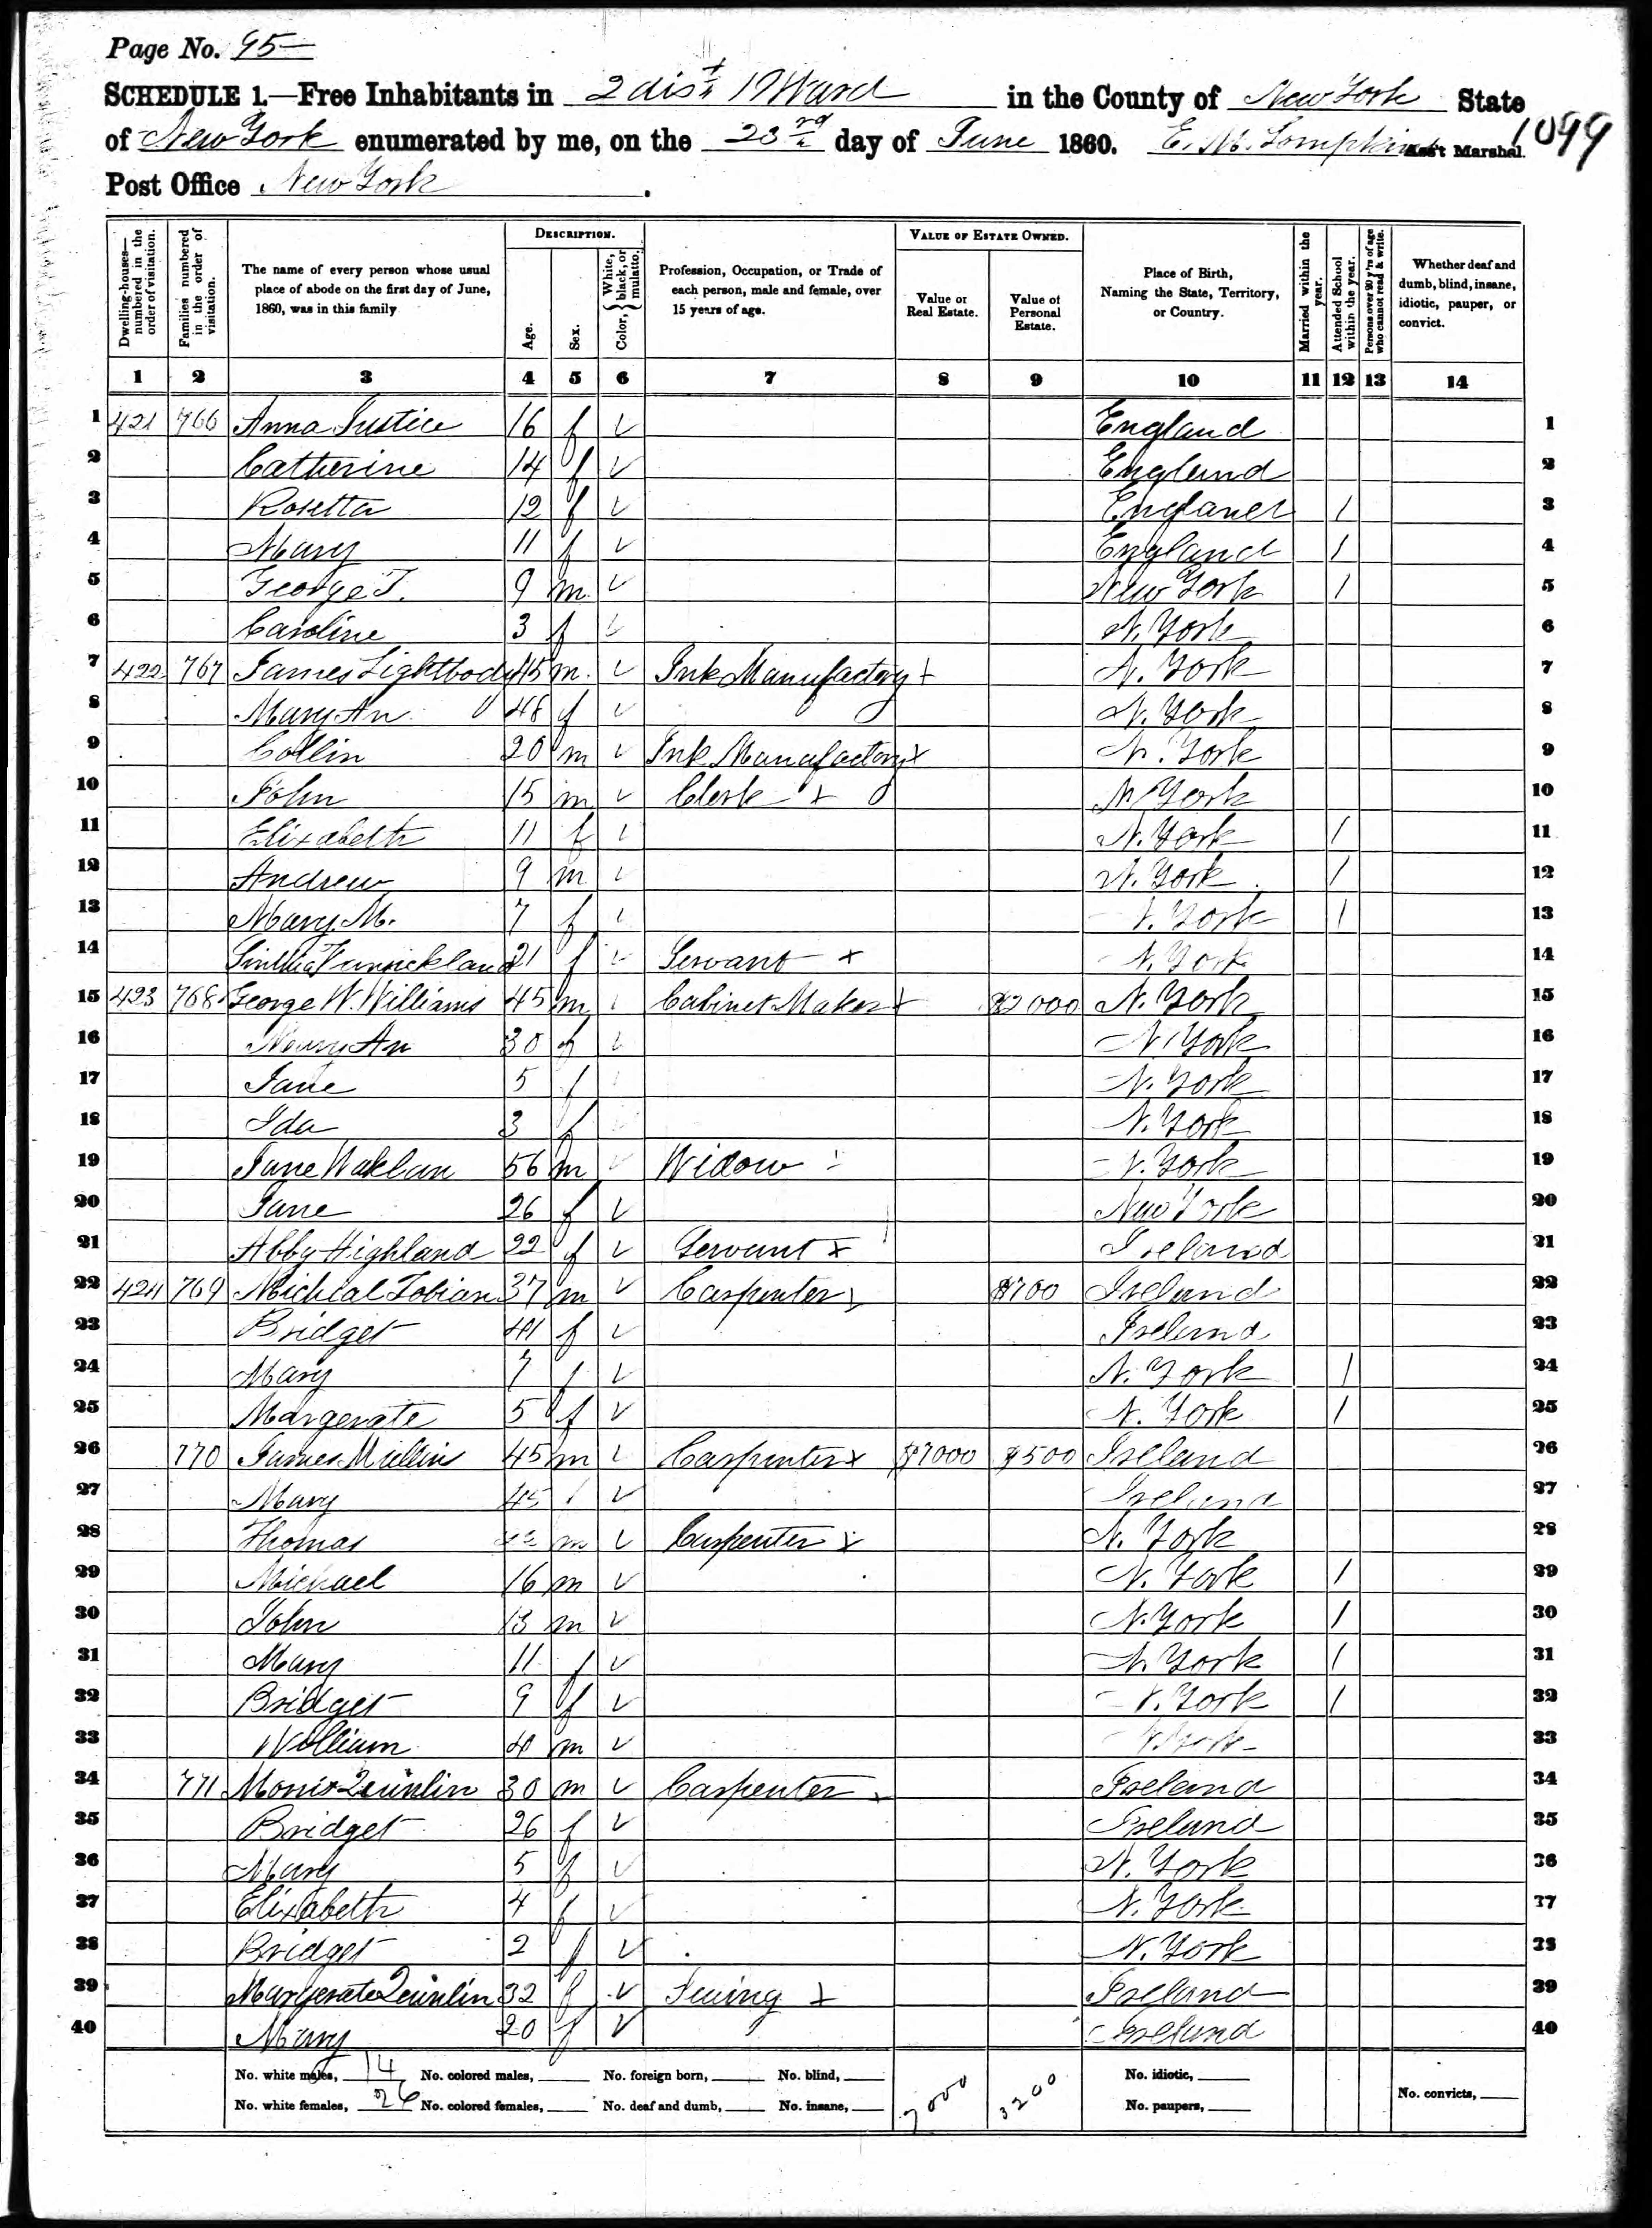 Page No. 95
SCHEDULE 1.—Free Inhabitants in 2 dist 19 Ward in the County of New York State
of New York enumerated by me, on the 23rd day of June 1860. E. M. Tompkins Ass't Marshal.
1099
Post Office New York.
Dwelling-houses—numbered in the order of visitation. Families numbered in the order of visitation. The name of every person whose usual place of abode on the first day of June, 1860, was in this family DESCRIPTION. Age. Sex. Color, { White, black, or mulatto. Profession, Occupation, or Trade of each person, male and female, over 15 years of age. VALUE OF ESTATE OWNED. Value of Real Estate. Value of Personal Estate. Place of Birth, Naming the State, Territory, or Country. Married within the year. Attended School within the year. Persons over 20 y'rs of age who cannot read & write. Whether deaf and dumb, blind, insane, idiotic, pauper, or convict.
1 2 3 4 5 6 7 8 9 10 11 12 13 14
1 421 766 Anna Justice 16 f ✓ England 1
2 Catherine 14 f ✓ England 2
3 Rosetta 12 f ✓ England / 3
4 Mary 11 f ✓ England / 4
5 George T. 9 m ✓ New York / 5
6 Caroline 3 f ✓ N. York 6
7 422 767 James Lightbody 45 m. ✓ Ink Manufactory + N. York 7
8 Mary An 48 f ✓ N. York 8
9 Collin 20 m ✓ Ink Manufactory x N. York 9
10 John 15 m ✓ Clerk + N York 10
11 Elizabeth 11 f ✓ N. York / 11
12 Andrew 9 m ✓ N. York / 12
13 Mary M. 7 f ✓ N. York / 13
14 21 f ✓ Servant + N. York 14
15 423 768 George W. Williams 45 m ✓ Cabinet Maker + $2000 N. York 15
16 Mary An 30 f ✓ N. York 16
17 Jane 5 f N. York 17
18 Ida 3 f N. York 18
19 Jane 56 m ✓ Widow N. York 19
20 Jane 26 f ✓ New York 20
21 Abby Highland 22 f ✓ Servant x Ireland 21
22 424 769 Micheal Tobian 37 m ✓ Carpenter $700 Ireland 22
23 Bridget 41 f ✓ Ireland 23
24 Mary 7 f ✓ N. York / 24
25 Margerate 5 f ✓ N. York / 25
26 770 James Mullins 45 m ✓ Carpenter x $7000 $500 Ireland 26
27 Mary 45 ✓ Ireland 27
28 Thomas m ✓ Carpenter x N. York 28
29 Michael 16 m ✓ N. York / 29
30 John 13 m ✓ N. York / 30
31 Mary 11 f ✓ N. York / 31
32 Bridget 9 f ✓ N. York / 32
33 William 4 m ✓ N. York 33
34 771 Morris Quinlin 30 m ✓ Carpenter Ireland 34
35 Bridget 26 f ✓ Ireland 35
36 Mary 5 f ✓ N. York 36
37 Elizabeth 4 f ✓ N. York 37
38 Bridget 2 f ✓ N. York 38
39 Margerate Quinlin 32 f ✓ Sewing + Ireland 39
40 Mary 20 f ✓ Ireland 40
No. white males, 14 No. colored males, No. foreign born, No. blind, 7000 3200 No. idiotic, No. convicts,
No. white females, 26 No. colored females, No. deaf and dumb, No. insane, No. paupers,